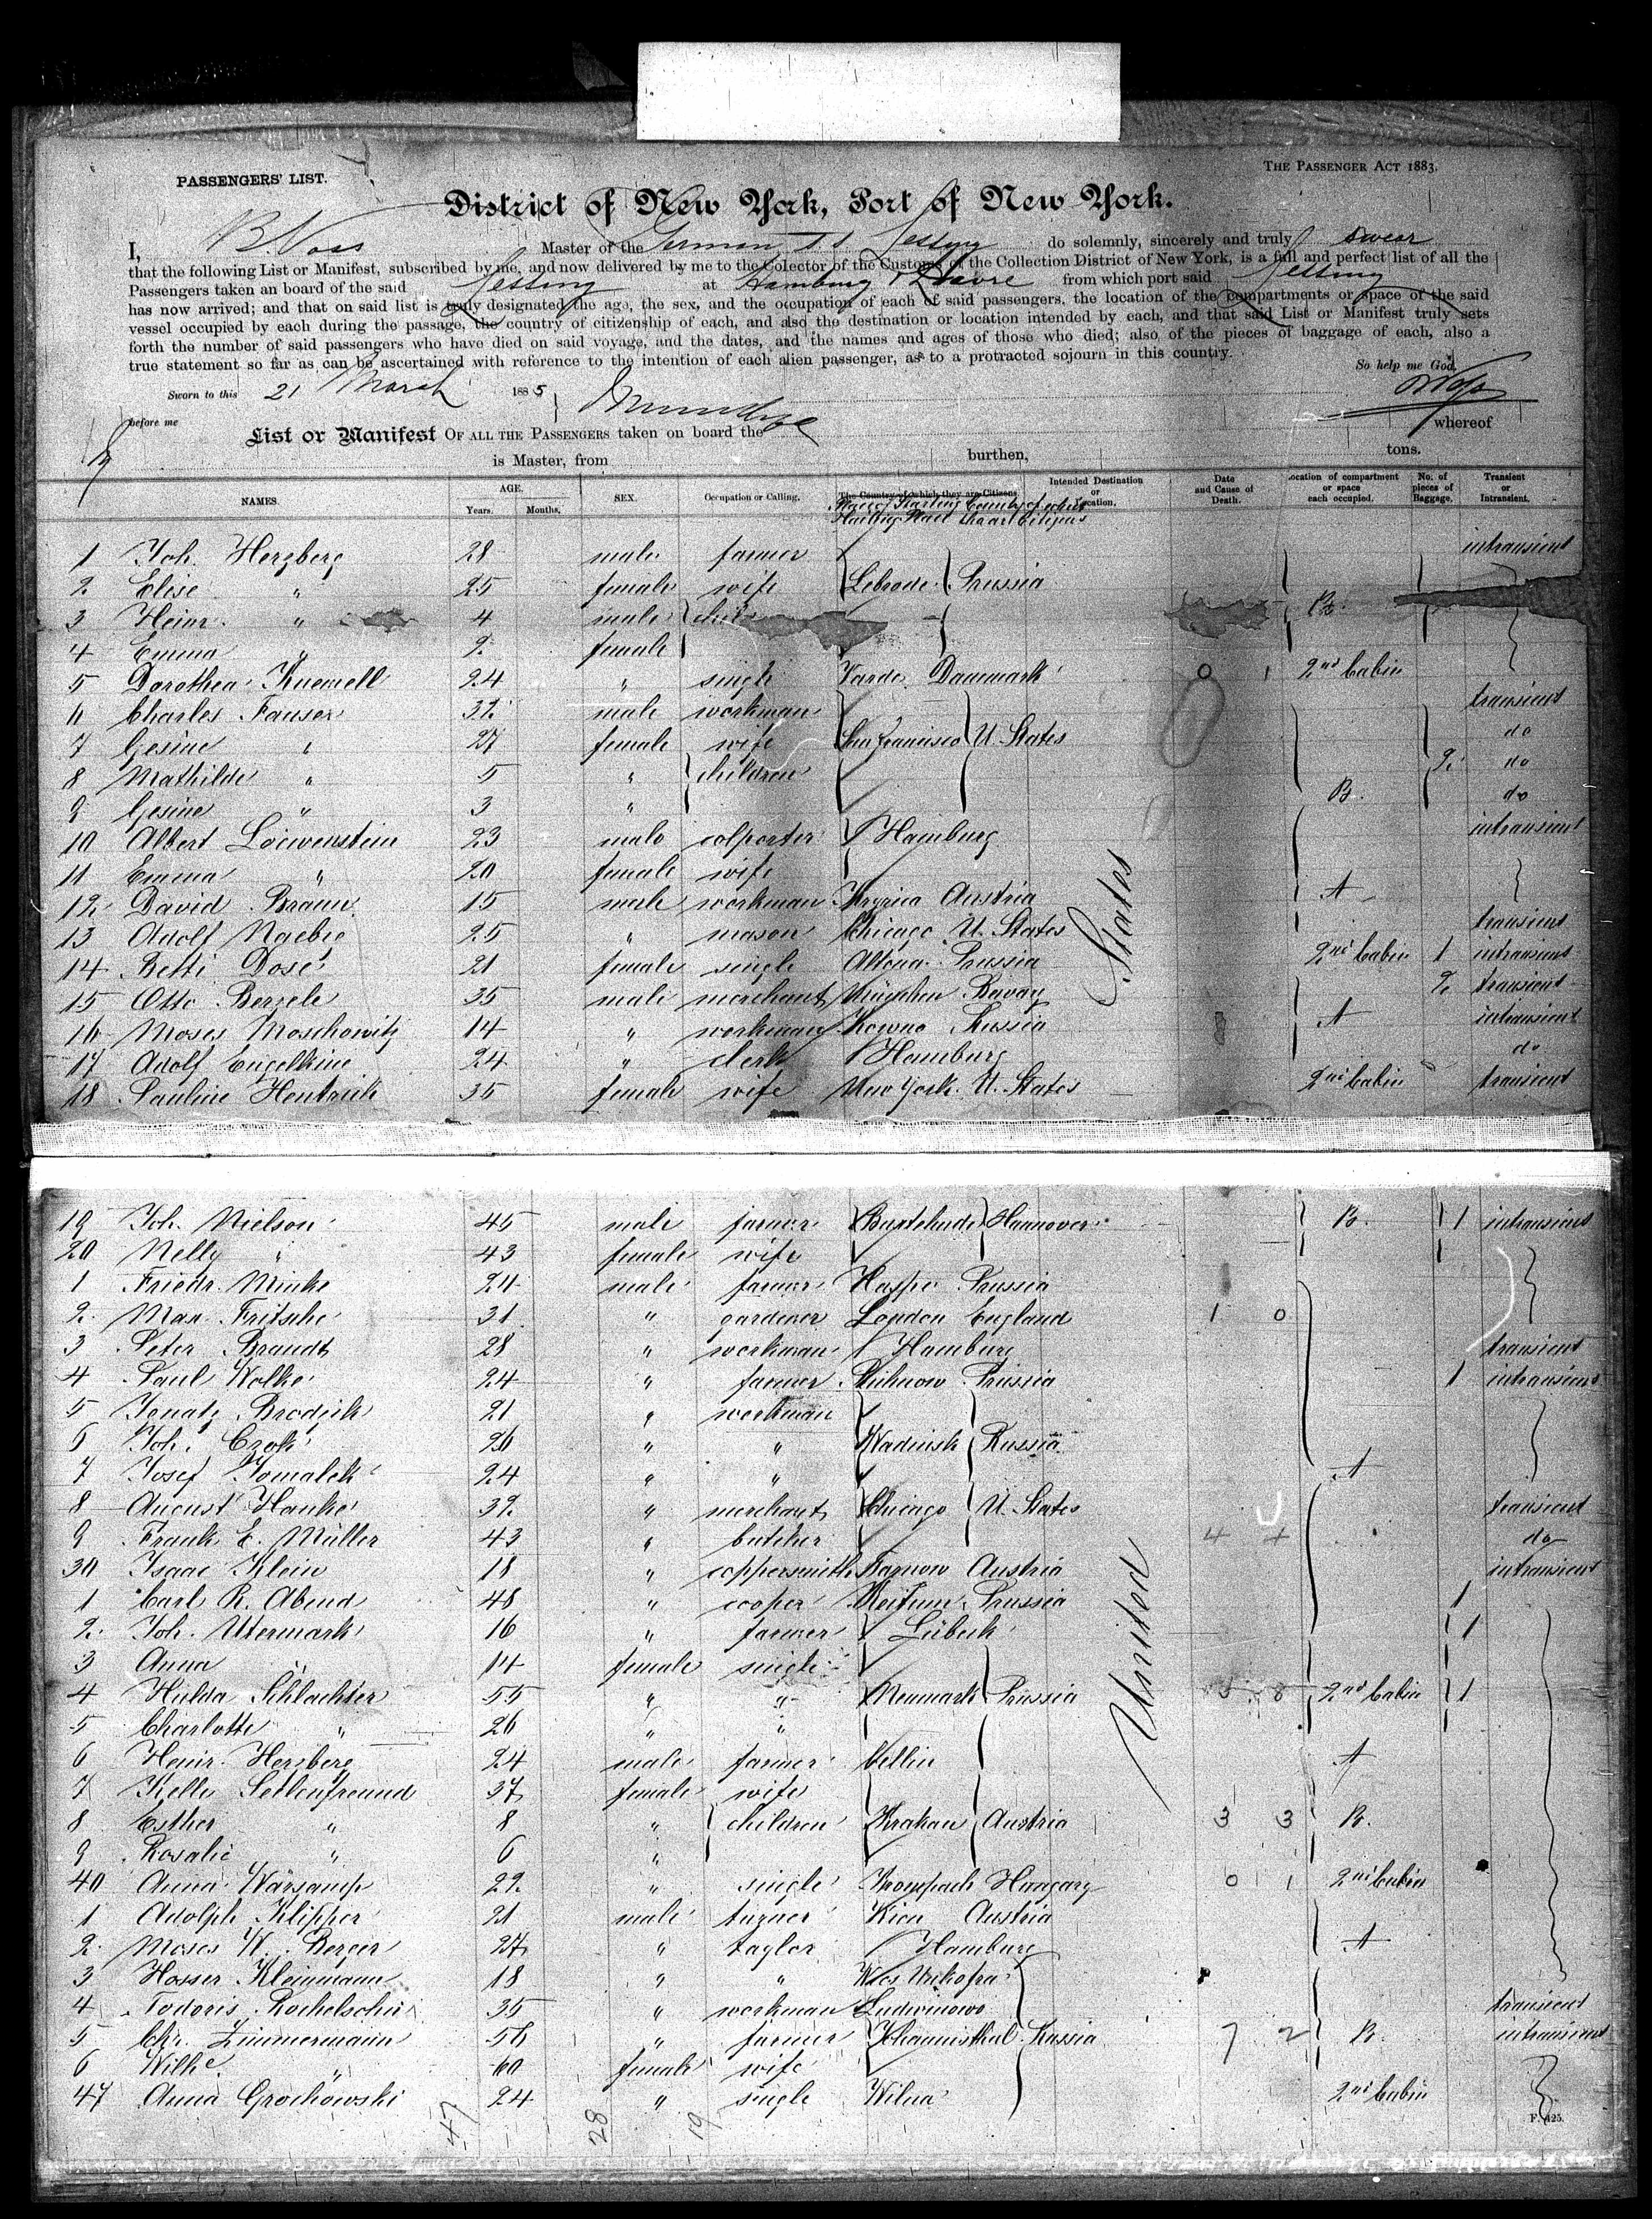 PASSENGERS' LIST.
THE PASSENGER ACT 1883.
District of New York, Port of New York.
I, B Voss Master of the German S.S. Lessing do solemnly, sincerely and truly swear
that the following List or Manifest, subscribed by me, and now delivered by me to the Colector of the Customs of the Collection District of New York, is a full and perfect list of all the
Passengers taken an board of the said Lessing at Hamburg & Havre from which port said Lessing
has now arrived; and that on said list is truly designated the age, the sex, and the occupation of each of said passengers, the location of the compartments or space of the said
vessel occupied by each during the passage, the country of citizenship of each, and also the destination or location intended by each, and that said List or Manifest truly sets
forth the number of said passengers who have died on said voyage, and the dates, and the names and ages of those who died; also of the pieces of baggage of each, also a
true statement so far as can be ascertained with reference to the intention of each alien passenger, as to a protracted sojourn in this country.
So help me God.
Sworn to this 21 March 1885 Voss
before me
List or Manifest OF ALL THE PASSENGERS taken on board the whereof
is Master, from burthen, tons.
NAMES. AGE. Years. Months. SEX. Occupation or Calling. The Country of which they are Citizens Intended Destination or Location. Date and Cause of Death. Location of compartment or space each occupied. No. of pieces of Baggage. Transient or Intransient.
1 Joh. Herzberg 28 male farmer intransient
2 Elise " 25 female wife Prussia
3 Heinr. " 4 male B.
4 Emma " 2 female
5 Dorothea 24 " single Varde Danemark 0 1 2nd Cabin
6 Charles Fauser 32 male workman transient
7 Gesine " 27 female wife San Francisco U. States do
8 Mathilde " 5 " children 2 do
9 Gesine " 3 " B. do
10 Albert Loewenstein 23 male colporter Hamburg intransient
11 Emma " 20 female wife
12 David Braun 15 male workman Austria A
13 Adolf 25 " mason Chicago U. States transient
14 Betti Dose 21 female single Altona Prussia 2nd Cabin 1 intransient
15 Otto 35 male merchant 2 transient
16 Moses Moschowitz 14 " workman Kowno Russia A intransient
17 Adolf Engelkine 24 " clerk Hamburg do
18 Pauline Hentrich 35 female wife New York U. States 2nd Cabin transient
States
19 Joh. Nielson 45 male farmer Buxtehude Hannover B. 1 intransient
20 Nelly " 43 female wife
1 Friedr. Minke 24 male farmer Haspe Prussia
2 Max Fritsche 31 " gardener London England 1 0
3 Peter Brandt 28 " workman Hamburg transient
4 Paul Wolke 24 " farmer Prussia 1 intransient
5 Ignatz 21 " workman
6 Joh. 26 " " Russia
7 Josef 24 " " A
8 August Hanke 32 " merchant Chicago U. States transient
9 Frank E. Müller 43 " butcher 4 4 do
30 Isaac Klein 18 " coppersmith Tarnow Austria intransient
1 Carl R. Abend 48 " cooper Keitum Prussia 1
2 Joh. Utermark 16 " farmer Lübeck 1
3 Anna " 14 female single
4 Hulda Schlachter 55 " " Neumark Prussia 5 8 2nd Cabin 1
5 Charlotte " 26 " "
6 Heinr. Herzberg 24 male farmer A
7 37 female wife
8 Esther " 8 " children Krakau Austria 3 3 B.
9 Rosalie " 6 "
40 Anna 22 " single Krompach Hungary 0 1 2nd Cabin
1 Adolph Klipper 21 male turner Austria
2 Moses W. Berger 27 " taylor Hamburg A
3 Kleinmann 18 " "
4 35 " workman Ludwinowo transient
5 Chr. Zimmermann 56 " farmer Russia 7 2 B. intransient
6 Wilhe. " 60 female wife
47 Anna Grochowski 24 " single Wilna 2nd Cabin
United
47 28 19
F. 425.